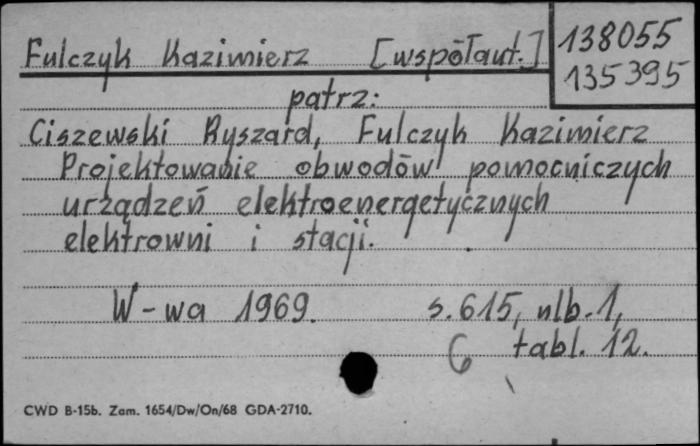 Fulczyk Kazimierz [współaut.]
138055
135395
patrz:
Ciszewski Ryszard, Fulczyk Kazimierz
Projektowanie obwodów pomocniczych
urządzeń elektroenergetycznych
elektrowni i stacji.
W-wa 1969. s. 615, nlb. 1,
6 tabl. 12.
CWD B-15b. Zam. 1654/Dw/On/68 GDA-2710.